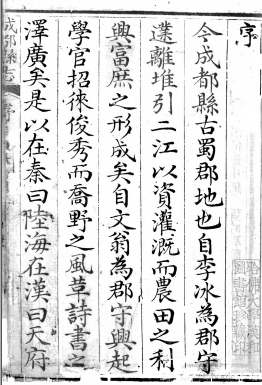 序
今成都縣古蜀郡地也自李冰為郡守
遶離堆引二江以資灌溉而農田之利
興富庶之形成矣自文翁為郡守興起
學官招徠俊秀而喬野之風草詩書之
澤廣矣是以在秦曰陸海在漢曰天府
成都縣志 序